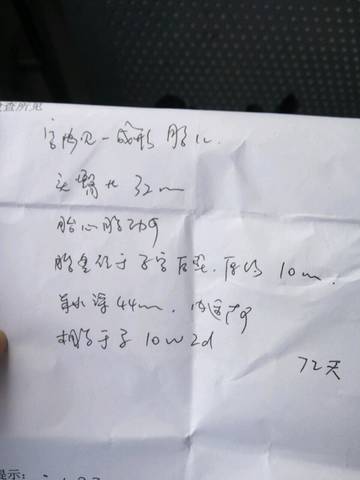 检查所见
宫内见一成形胎儿.
头臀长 32mm
胎心胎动
胎盘位于子宫后壁. 厚约 10mm.
羊水深 44mm.
相当于孕 10w2d
72天
提示: